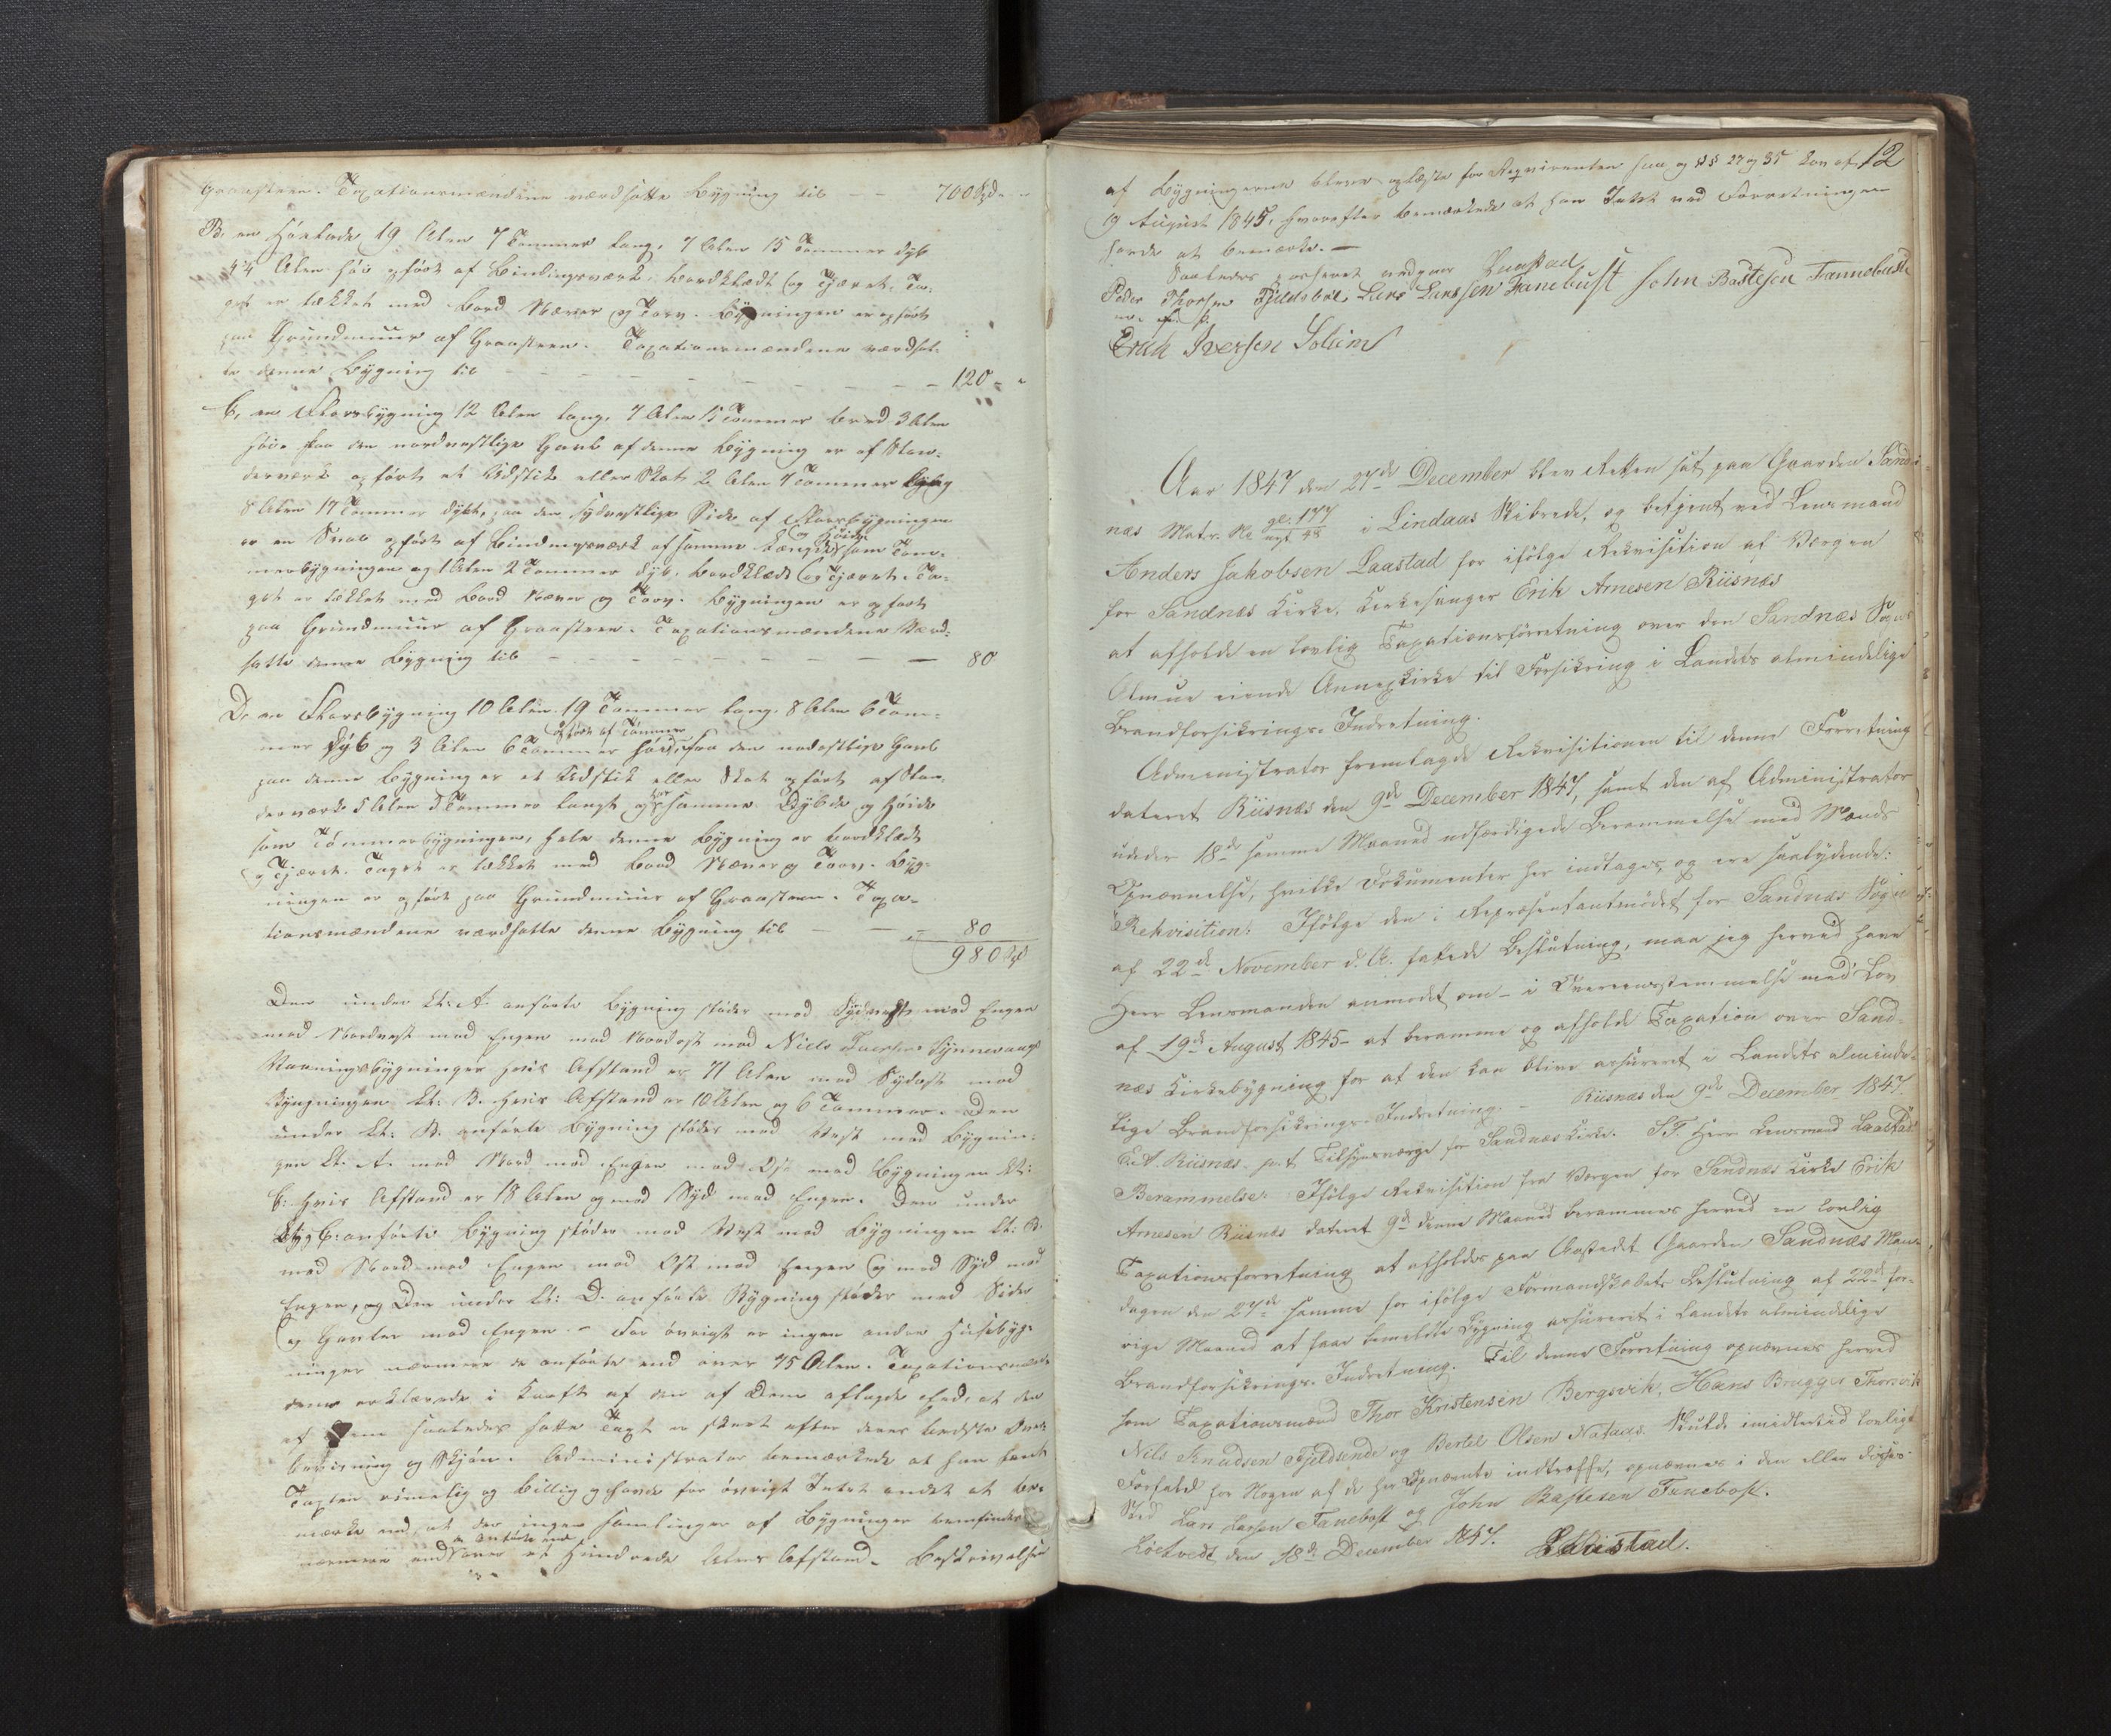 Graasteen. Taxationsmændene værdsatte Bygning til — — 700 Spd. "
B, en Høelade 19 Alen 7 Tommer lang, 7 Alen 15 Tommer dyb
4¼ Alen høi opført af Bindingsværk, bordklædt og tjæret. Ta-
get er tækket med Bord Næver og Torv. Bygningen er opført
paa Grundmuur af Graasteen. Taxationsmændene værdsat-
te denne Bygning til — — — — — — — — 120 " "
C, en Floorbygning 12 Alen lang, 7 Alen 15 Tommer bred 3 Alen
høi. Paa den nordvestlige Gavl af denne Bygning er af Stav-
derværk opført et Udstik eller Skot 2 Alen 7 Tommer
8 Alen 17 Tommer dybt, paa den sydvestlige Side af Floorbygningen
er en Sval opført af Bindingsværk af samme Længde og Høide som Tøm-
merbygningen og 1 Alen 2 Tommer dyb, bordklædt og tjæret. Ta-
get er tækket med Bord Næver og Torv. Bygningen er opført
paa Grundmuur af Graasteen. Taxationsmændene Værd-
satte denne Bygning til — — — — — — — 80
D, en Floorbygning 10 Alen 19 Tommer lang, 8 Alen 6 Tom-
mer dyb og 3 Alen 6 Tommer høi, opført af Tømmer paa den nordostlige Gavl
paa denne Bygning er et Udstik eller Skot opført af Stav-
derværk 5 Alen 3 Tommer langt og har samme Dybde og Høide
som Tømmerbygningen, hele denne Bygning er bordklædt
og tjæret. Taget er tækket med Bord Næver og Torv. Byg-
ningen er opført paa Grundmuur af Graasteen. Taxa-
tionsmændene værdsatte denne Bygning til — — 80
980 Spd
Den under Lt: A. anførte Bygning støder mod Sydvest mod Engen
mod Nordvest mod Engen mod Nordost mod Niels Synnevaags
Vaaningsbygninger hvis Afstand er 71 Alen mod Sydost mod
Bygningen Lt: B. hvis Afstand er 10 Alen og 6 Tommer. Den
under Lt: B. anførte Bygning støder mod Vest mod Bygnin-
gen Lt: A. mod Nord mod Engen mod Ost mod Bygningen Lt:
C: hvis Afstand er 18 Alen og mod Syd mod Engen. Den under
C: anførte Bygning støder mod Vest mod Bygningen Lt: B.
mod Nord mod Engen mod Ost mod Engen og mod Syd mod
Engen, og Den under Lt: D. anførte Bygning støder med Sider
og Gavler mod Engen. — For øvrigt er ingen andre Huusbyg-
ninger nærmere de anførte end over 75 Alen. Taxationsmæn-
dene erklærede i Kraft af den af Dem aflagde Eed, at den
af Dem saaledes satte Taxt er skeet efter deres bedste Over-
beviisning og Skjøn. Administrator bemærkede at han fandt
Taxten rimelig og billig og havde for øvrigt Intet andet at be-
mærke end, at der ingen Samlinger af Bygninger befindes
nærmere end anførte end over et Hundrede Alens Afstand. Beskrivelsen
12
af Bygningerne bleve oplæste for Reqvirenten saa og §§ 27 og 35 Lov af
19 August 1845, hvorefter bemærkede at han Intet ved Forretningen
havde at bemærke. —
Saaledes passeret undgaar Laastad
Peder Thorsen Fjeldsbøe Lars Larssen Fanebust John Bastesen Fannebust
m. f. P.
Erich Iversen Solem
Aar 1847 den 27de December blev Retten sat paa Gaarden Sand-
næs Matr. No gl. 177 nyt 48 i Lindaas Skibrede, og betjent ved Lensmand
Anders Jakobsen Laastad for ifølge Rekvisition af Værgen
for Sandnæs Kirke, Kirkesanger Erik Arnesen Riisnæs
at afholde en lovlig Taxationsforretning over den Sandnæs Sogns
Almue eiende Annexkirke til Forsikring i Landets almindelige
Brandforsikrings-Indretning.
Administrator fremlagde Rekvisitionen til denne Forretning
dateret Riisnæs den 9de December 1847, samt den af Administrator
under 18de samme Maaned udfærdigede Berammelse med Mænds
Opnævnelse, hvilke Dokumenter her indtages, og ere saalydende:
Rekvisition: Ifølge den i Repræsentantmødet for Sandnæs Sogn
af 22de November d. A. fattede Beslutning, maa jeg herved have
Herr Lensmanden anmodet om — i Overeensstemmelse med Lov
af 19de August 1845 — at beramme og afholde Taxation over Sand-
næs Kirkebygning for at den kan blive assureret i Landets alminde-
lige Brandforsikrings-Indretning. — Riisnæs den 9de December 1847.
E. A. Riisnæs p. t. Tilsynsværge for Sandnæs Kirke. S. T. Herr Lensmand Laastad
Berammelse: Ifølge Rekvisition fra Værgen for Sandnæs Kirke Erik
Arnesen Riisnæs dateret 9de denne Maaned berammes herved en lovlig
Taxationsforretning at afholdes paa Aastedet Gaarden Sandnæs Man-
dagen den 27de samme for ifølge Formandskabets Beslutning af 22de for-
rige Maaned at faae bemeldte Bygning assureret i Landets almindelige
Brandforsikrings-Indretning. Til denne Forretning opnævnes herved
som Taxationsmænd Thor Kristensen Bergsvik, Hans Brugger Thorsvik
Nils Knudsen Fjeldsende og Bertel Olsen Nataas. Skulde imidlertid lovligt
Forfald for Nogen af de her Opnævnte indtræffe, opnævnes i den eller disses
Sted Lars Larsen Fanebost og John Bastesen Fanebost.
Løctvedt den 18de December 1847. Laastad.